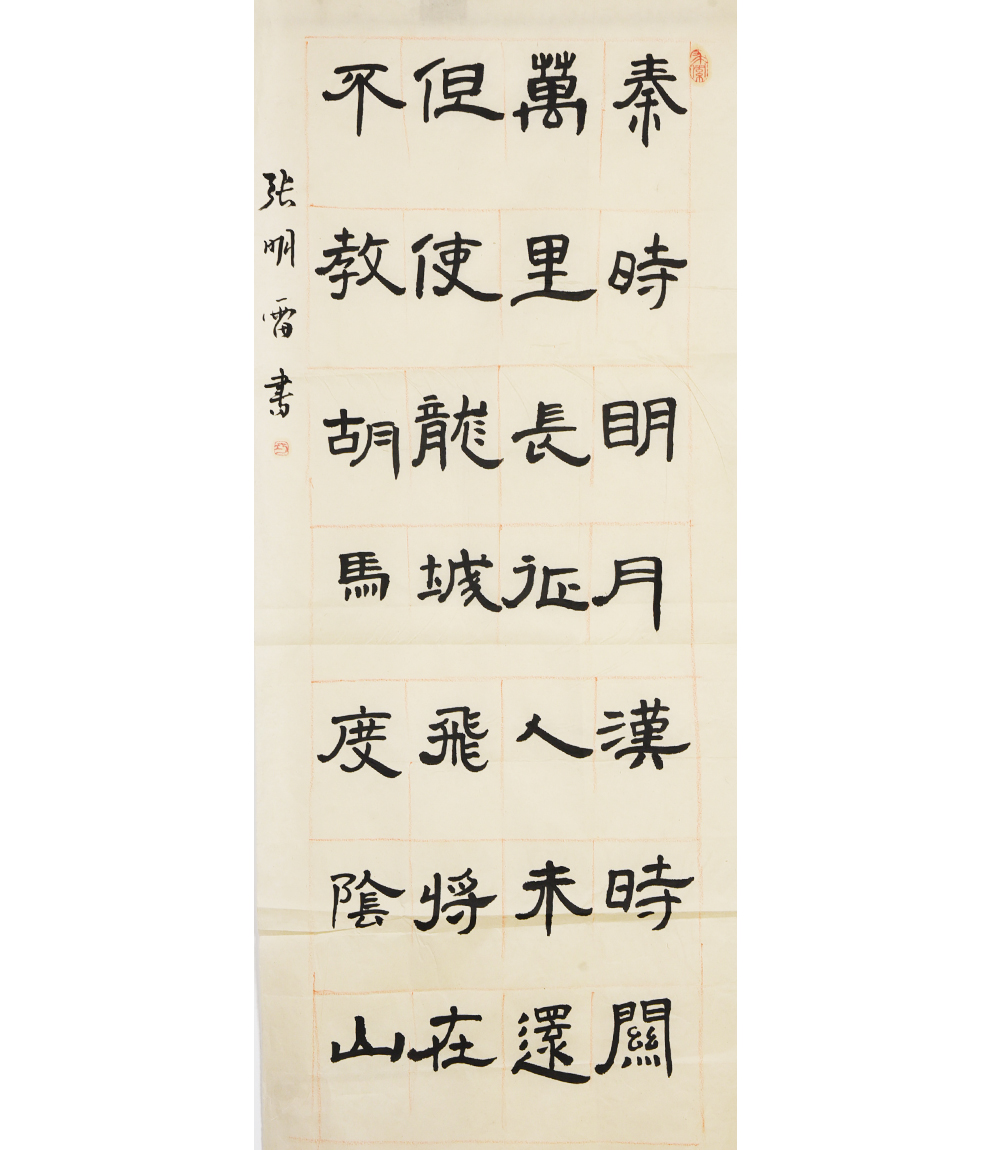 秦時明月漢時關
萬里長征人未還
但使龍城飛將在
不教胡馬度陰山
張明雷書